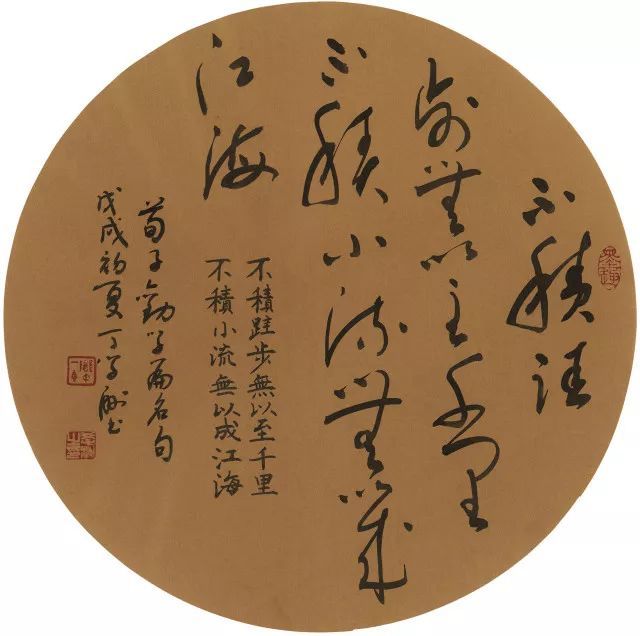 不積跬
步無以至千里
不積小流無以成
江海
不積跬步無以至千里
不積小流無以成江海
荀子勸学篇名句
戊戌初夏丁